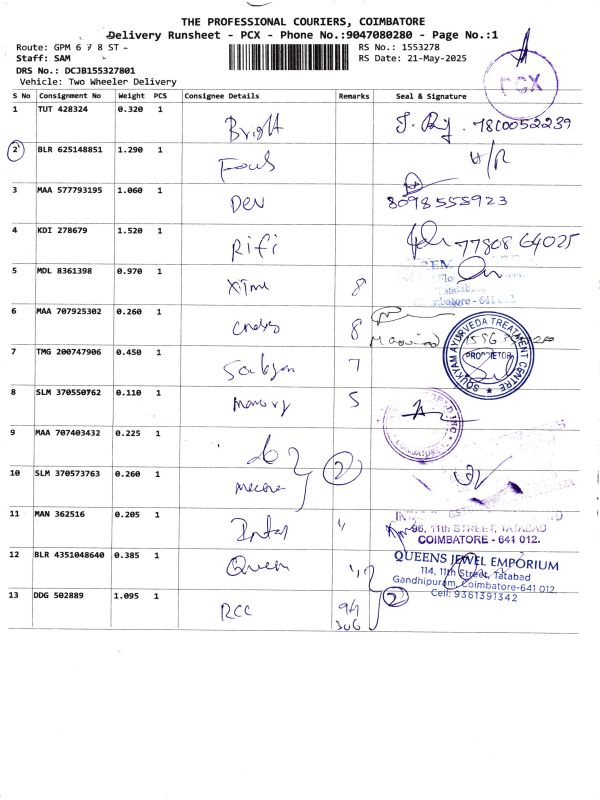 THE PROFESSIONAL COURIERS, COIMBATORE
Delivery Runsheet - PCX - Phone No.:9047080280 - Page No.:1
Route: GPM 6 7 8 ST -
RS No.: 1553278
Staff: SAM
RS Date: 21-May-2025
DRS No.: DCJB155327801
Vehicle: Two Wheeler Delivery
PCX
S No Consignment No Weight PCS Consignee Details Remarks Seal & Signature
1 TUT 428324 0.320 1 Bright 7810052239
2 BLR 625148851 1.290 1 Focus H/R
3 MAA 577793195 1.060 1 Dev 8098555923
4 KDI 278679 1.520 1 Rifi 77808 64025
5 MDL 8361398 0.970 1 Xtime 8
Coimbatore - 641
6 MAA 707925302 0.260 1 8
7 TMG 200747906 0.450 1 7
SOUKYAM AYURVEDA TREATMENT CENTRE
PROPRIETOR
8 SLM 370550762 0.110 1 5
9 MAA 707403432 0.225 1
2
10 SLM 370573763 0.260 1
11 MAN 362516 0.205 1 "
96, 11th STREET, TATABAD
COIMBATORE - 641 012.
12 BLR 4351048640 0.385 1 Queen "
QUEENS JEWEL EMPORIUM
114, 11th Street, Tatabad
Gandhipuram, Coimbatore-641 012.
Cell: 9361391342
13 DDG 502889 1.095 1 RCC 2
306